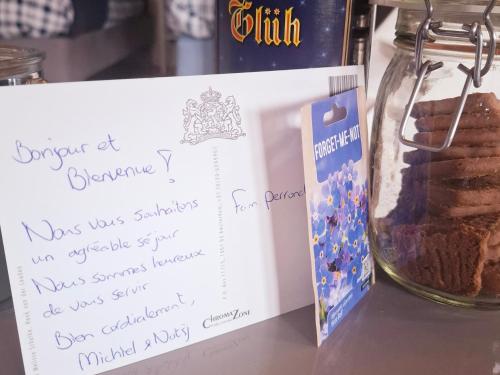 Glüh
Bonjour et
Bienvenue !
Nous vous souhaitons
un agréable séjour
Nous sommes heureux
de vous servir
Bien cordialement,
Michiel & Notÿ
Fam Perron
CHROMAZONE
FORGET-ME-NOT